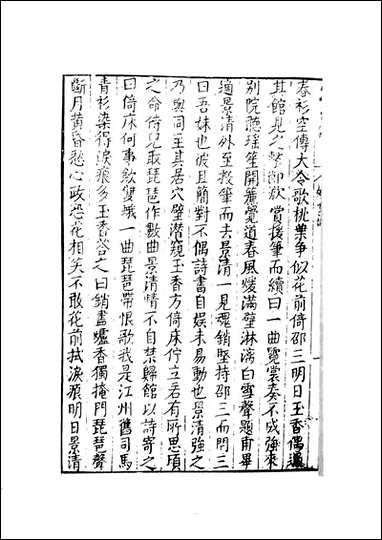 春衫空傳大令歌桃葉爭似花前倚邵三明日玉香偶過
其館見之擊節歎賞援筆而續曰一曲霓裳奏不成強來
別院聽瑶笙開簾覺道春風煖滿壁淋漓白雪聲題甫畢
適景清外至投筆而去景清一見魂銷堅持邵三而問三
曰吾妹也彼且簡對不偶詩書自娛未易動也景清強之
乃與同至其居穴壁潜窺玉香方倚床佇立若有所思頃
之命侍兒取琵琶作數曲景清情不自禁歸館以詩寄之
曰倚床何事歛雙蛾一曲琵琶帶恨歌我是江州舊司馬
青衫染得淚痕多玉香答之曰銷盡爐香獨掩門琵琶聲
斷月黃昏愁心政恐花相笑不敢花前拭淚痕明日景清